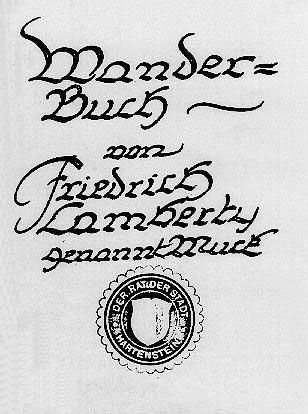 Wander=
Buch
von
Friedrich
Lamberty
genannt Muck
DER RAT DER STADT
HARTENSTEIN